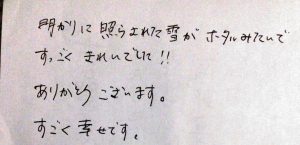 明かりに照らされた雪がホタルみたいで
すっごくきれいでした!!
ありがとうございます。
すごく幸せです。